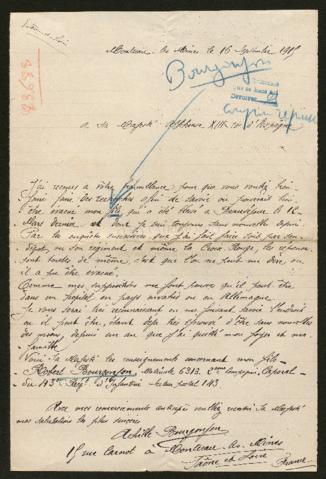 Saône et Loire
Montceau-les-Mines le 16 Septembre 1915
Bourgonjon
A Sa Majesté Alphonse XIII roi d'Espagne
J'ai recours à votre bienveillance pour que vous vouliez bien
faire faire des recherches afin de savoir où pourrait bien
être évacué mon fils qui a été blessé à le 1er
Mars dernier et dont je suis toujours sans nouvelles depuis
Par les enquêtes que j'ai fait faire soit par son
dépôt, ou son régiment et même la Croix Rouge, les réponses
sont toutes de même, c'est que l'on ne sait me dire, où
il a pu être évacué.
Comme mes suppositions me font croire qu'il peut être
dans un hôpital en pays envahis ou en Allemagne
Je vous serai très reconnaissant en me faisant savoir l'endroit
où il peut être, étant déjà très éprouvé d'être sans nouvelles
des miens depuis un an que j'ai quitté mon foyer et ma
famille.
Voici Sa Majesté les renseignements concernant mon fils
Robert Bourgonjon Matricule 6313 Compagnie, Caporal
au 43e Rég. d'Infanterie Secteur postal 143
Avec mes remerciements anticipés veuillez recevoir Sa Majesté
mes salutations les plus sincères
Achille Bourgonjon
15 rue Carnot à Montceau-les-Mines
Saône et Loire
France